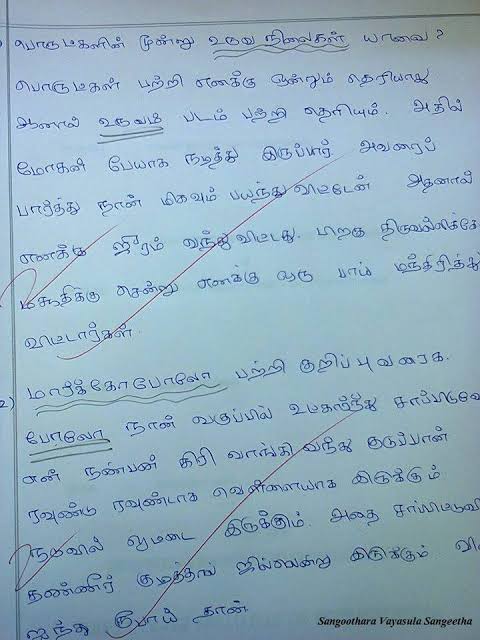 பொருட்களின் மூன்று உருவ நிலைகள் யாவை?
பொருட்கள் பற்றி எனக்கு ஒன்றும் தெரியாது
ஆனால் உருவம் படம் பற்றி தெரியும். அதில்
மோகனி பேயாக நடித்து இருப்பார் அவரைப்
பார்த்து நான் மிகவும் பயந்து விட்டேன் அதனால்
எனக்கு ஜீரம் வந்து விட்டது. பிறகு திருவல்லிக்கே
மசூதிக்கு சென்று எனக்கு ஒரு பாய் மந்திரித்து
விட்டார்கள்.
2) மார்க்கோபோலோ பற்றி குறிப்பு வரைக.
போலோ நான் வகுப்பில் உட்கார்ந்து சாப்பிடுவே
என் நண்பன் கிரி வாங்கி வந்து குடுப்பான்
ரவுண்டு ரவுண்டாக வெள்ளையாக இருக்கும்
நடுவில் ஓட்டை இருக்கும். அதை சாப்பிட்டுவி
தண்ணீர் குடித்தால் ஜில்லென்று இருக்கும் வி
ஐந்து ரூபாய் தான்
Sangoothara Vayasula Sangeetha